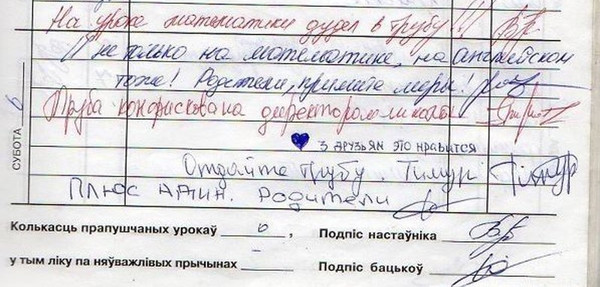 На уроке математики дудел в трубу!!!
И не только на математике, на английском
тоже! Родители, примите меры!
Труба конфискована директором школы
3 друзьям это нравится
Отдайте трубу. Тимур Тимур
Плюс Адин. Родители
СУББОТА 6
Колькасць прапушчаных урокаў 6, Подпіс настаўніка
у тым ліку па няўважлівых прычынах – Подпіс бацькоў